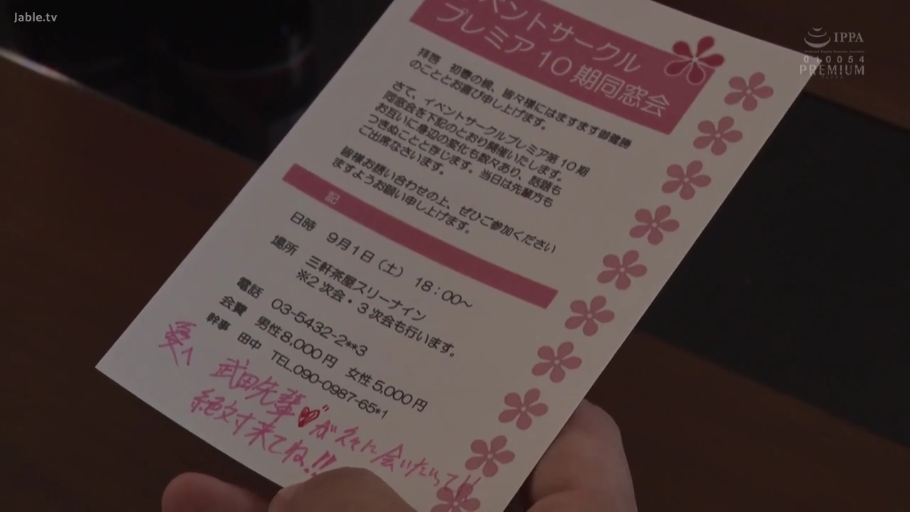 Jable.tv
IPPA
010054
PREMIUM
ベントサークル
プレミア10期同窓会
拝啓 初春の候、皆々様にはますます御健勝
のこととお慶び申し上げます。
さて、イベントサークルプレミア第10期
同窓会を下記のとおり開催いたします。
お互いに身辺の変化も数々あり、話題も
つきぬことと存じます。当日は先輩方も
ご出席なさいます。
皆様お誘い合わせの上、ぜひご参加ください
ますようお願い申し上げます。
記
日時 9月1日(土) 18:00~
場所 三軒茶屋スリーナイン
※2次会・3次会も行います。
電話 03-5432-2**3
会費 男性8,000円 女性5,000円
幹事 田中 TEL.090-0987-65*1
愛へ 武田先輩♥が久々に会いたいって!!
絶対来てね!!